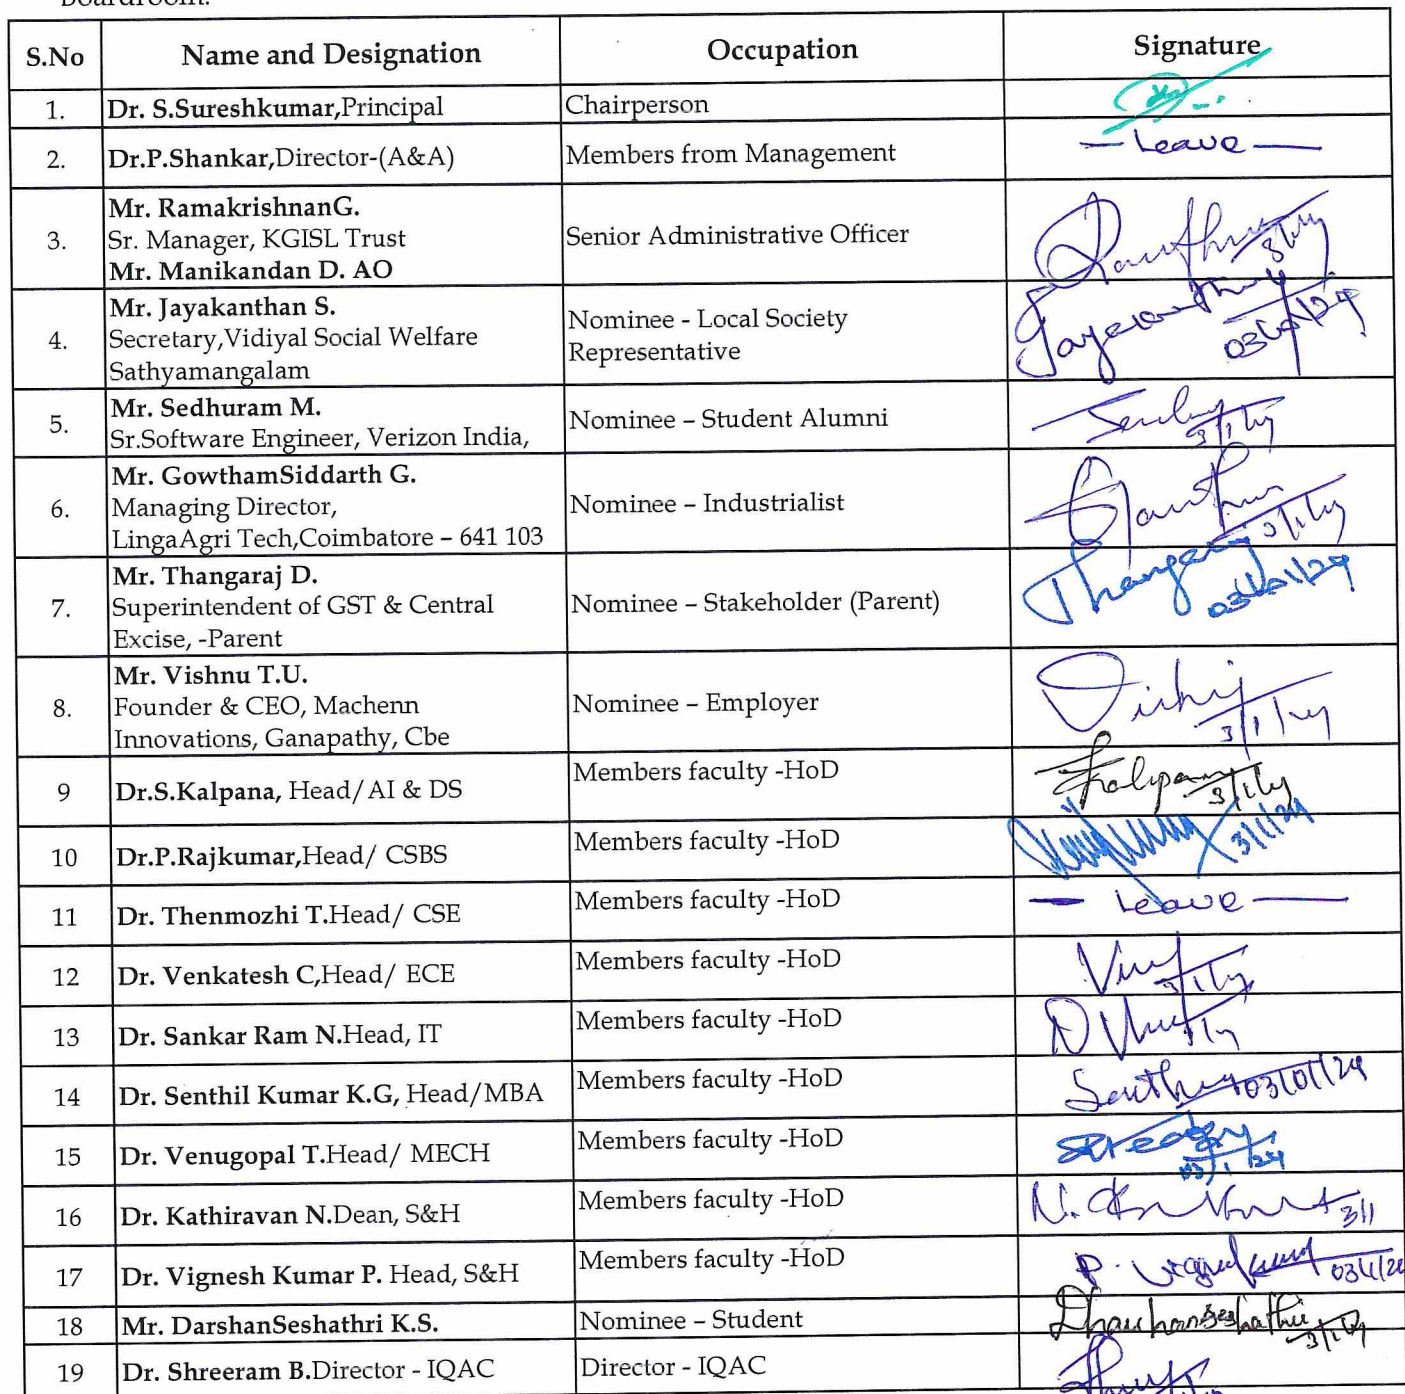 Boardroom.
S.No Name and Designation Occupation Signature
1. Dr. S.Sureshkumar,Principal Chairperson
2. Dr.P.Shankar,Director-(A&A) Members from Management — Leave —
3. Mr. RamakrishnanG.
Sr. Manager, KGISL Trust
Mr. Manikandan D. AO
Senior Administrative Officer
4. Mr. Jayakanthan S.
Secretary,Vidiyal Social Welfare
Sathyamangalam
Nominee - Local Society
Representative
03/01/24
5. Mr. Sedhuram M.
Sr.Software Engineer, Verizon India,
Nominee – Student Alumni
3/1/24
6. Mr. GowthamSiddarth G.
Managing Director,
LingaAgri Tech,Coimbatore – 641 103
Nominee – Industrialist
3/1/24
7. Mr. Thangaraj D.
Superintendent of GST & Central
Excise, -Parent
Nominee – Stakeholder (Parent)
Thangaraj
03/01/24
8. Mr. Vishnu T.U.
Founder & CEO, Machenn
Innovations, Ganapathy, Cbe
Nominee – Employer
3/1/24
9 Dr.S.Kalpana, Head/AI & DS Members faculty -HoD
3/1/24
10 Dr.P.Rajkumar,Head/ CSBS Members faculty -HoD 3/1/24
11 Dr. Thenmozhi T.Head/ CSE Members faculty -HoD — Leave —
12 Dr. Venkatesh C,Head/ ECE Members faculty -HoD
3/1/24
13 Dr. Sankar Ram N.Head, IT Members faculty -HoD
14 Dr. Senthil Kumar K.G, Head/MBA Members faculty -HoD 03/01/24
15 Dr. Venugopal T.Head/ MECH Members faculty -HoD
03/1/24
16 Dr. Kathiravan N.Dean, S&H Members faculty -HoD 3/1
17 Dr. Vignesh Kumar P. Head, S&H Members faculty -HoD P.
18 Mr. DarshanSeshathri K.S. Nominee – Student
3/1/24
19 Dr. Shreeram B.Director - IQAC Director - IQAC